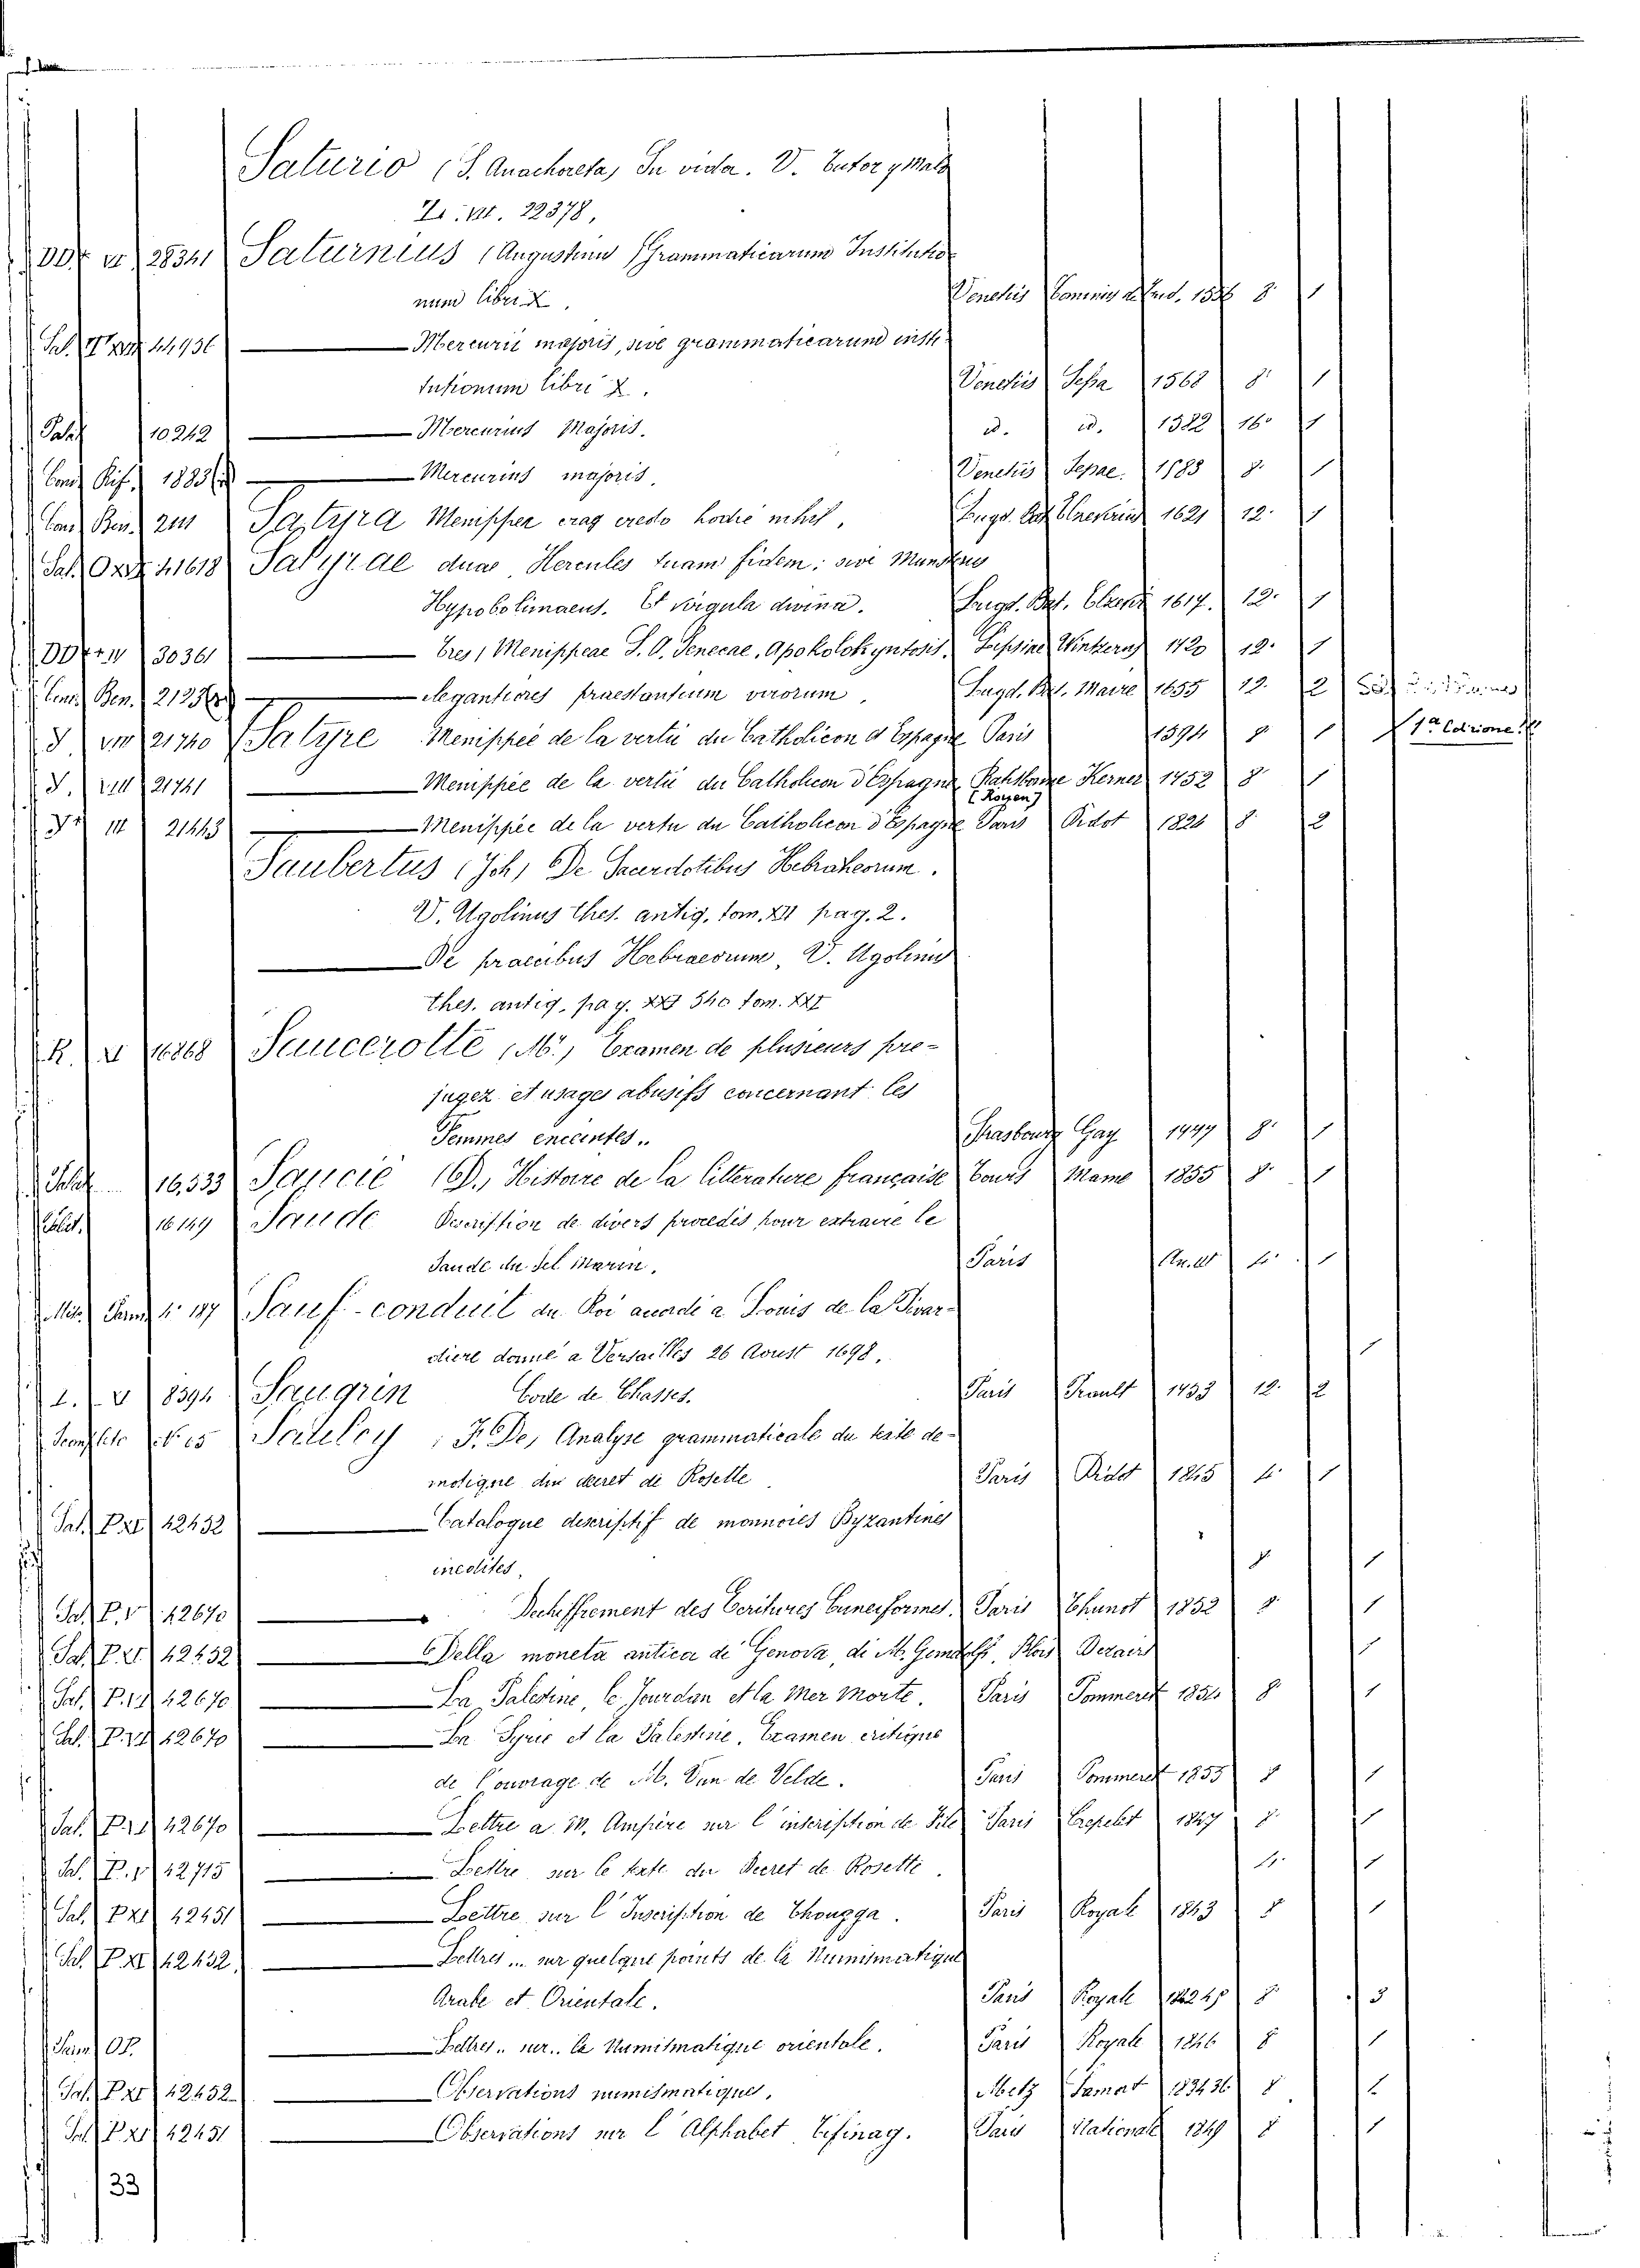 Saturio (S. Anachoreta) In vida. V. Tutor y Malo
22378,
28341 Saturnius (Augustinus) Grammaticarum Institutio-
num libri X. Venetiis 8° 1
44936 Mercurii majoris, sive grammaticarum insti-
tutionum libri X. Venetiis Sessa 1568 8° 1
Palat 10242 Mercurius Majoris. id. id. 1582 16° 1
Cons. Rif. 1883 Mercurius majoris. Venetiis Sepae. 1585 8° 1
Satyra Menippea crag credo hodie nihil, Lugd. Bat. Elzevirius 1621 12° 1
Sal. 41618 Satyrae duae, Hercules tuam fidem: sive Munsterus
Hypobolimaeus. Et virgula divina. Lugd. Bat. Elzevir 1617. 12° 1
30361 Tres (Menippeae S. A. Senecae, Apokolokyntosis. Lipsiae Winkerus 1720 12° 1
Cons. Ben. Elegantiores praestantium virorum. Lugd. Bat. Maire 1655 12. 2
21740 Satyre Menippée de la vertù du Catholicon d'Espagne Paris 1594 8 1 1ª Edizione
21741 Menippée de la vertù du Catholicon d'Espagne Ratisbonne Kerner 1752 8° 1
(Royen)
21443 Menippée de la vertu du Catholicon d'Espagne Paris Didot 1824 8. 2
Saubertus (Joh) De Sacerdotibus Hebraeorum.
V. Ugolinus thes. antiq. tom. XII pag. 2.
De praecibus Hebraeorum, V. Ugolinus
thes. antiq. pag. 540 tom. XXI
R. V 16868 Saucerotte (Mr) Examen de plusieurs pre-
jugez et usages abusifs concernant les
Femmes enceintes. Strasbourg Gay 1777 8° 1
16,533 Saucié (D., Histoire de la litterature française Tours Mame 1855 8. 1
16149 Saude Description de divers procedés pour extraire le
Saude du sel marin. Paris 4° 1
Sauf-conduit du Roi acordé a Louis de la Tivar-
diere donné a Versailles 26 Aoust 1698.
1
8394 Saugrin Code de Chasses. Paris Prault 1753 12. 2
Saulcy (F. De) Analyse grammaticale du texte de-
motique du decret de Rosette Paris Didot 1845 4. 1
42452 Catalogue descriptif de monnoies Byzantines
inedites. 8 1
Sal. P. V 42670 Dechiffrement des Ecritures Cuneiformes. Paris Thunot 1852 8 1
42452 Della moneta antica di Genova, di M. Gandolfi. Blois Dezairs 1
42670 La Palestine, le Jourdan et la Mer Morte. Paris Pommeret 1854 8 1
42670 La Syrie et la Palestine, Examen critique
de l'ouvrage de M. Van de Velde. Paris Pommeret 1855 8 1
42670 Lettre a M. Ampère sur l'inscription de File Paris Crepelet 1847 8. 1
Sal. P. V 42715 Lettre sur le texte du Decret de Rosette. 4. 1
Sal. P XI 42451 Lettre sur l'Inscription de Thougga. Paris Royale 1843 8 1
Sal. P XI 42452. Lettres ... sur quelque points de la Numismatique
Arabe et Orientale. Paris Royale 8° 3
Lettres.. sur.. la Numismatique orientale. Paris Royale 1846 8 1
Sal. P XI 42452 Observations numismatiques. Metz Lamort 183436 8 1
Sal. P XI 42451 Observations sur l'Alphabet Tefinag. Paris Nationale 1849 8 1
33